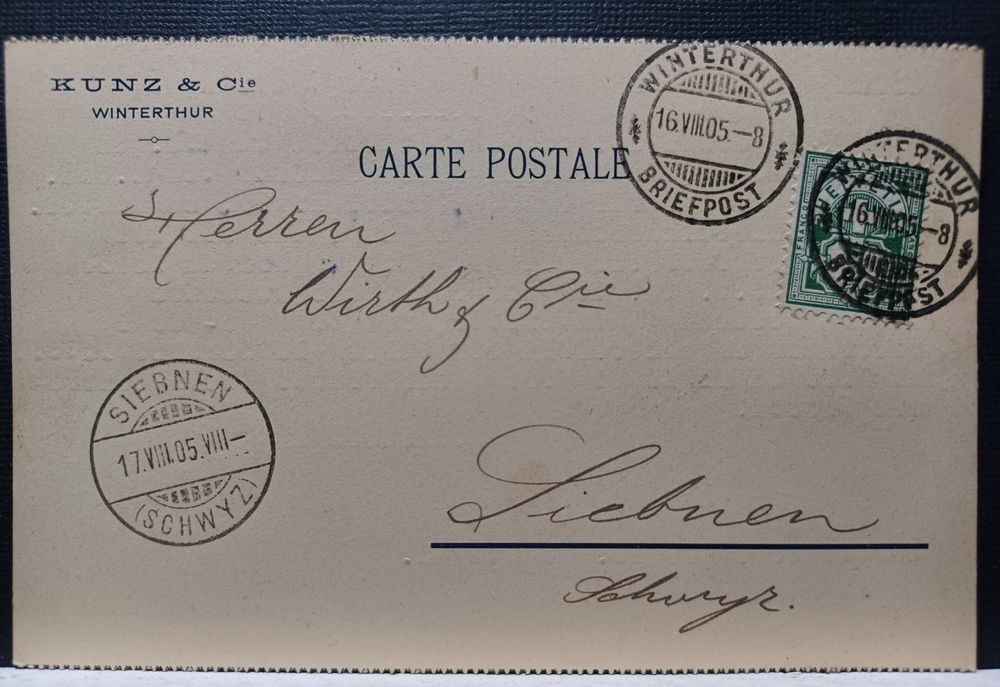 KUNZ & Cie
WINTERTHUR
CARTE POSTALE
WINTERTHUR
16.VIII.05.–8
BRIEFPOST
WINTERTHUR
16.VIII.05.–8
BRIEFPOST
FRANCO
Herren
Wirth & Cie
SIEBNEN
17.VIII.05.VIII–
(SCHWYZ)
Siebnen
Schwyz.